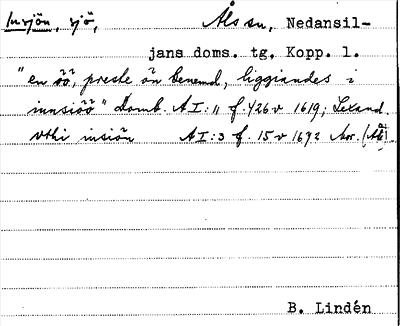 Insjön, sjö, Åls sn, Nedansil-
jans doms. tg, Kopp. l.
"en öö, preste ön benemd, liggiandes i
innsiöö" Domb. A I:11 f. 426 v 1619; Leksand.
vthi insiön A I:3 f. 15 v 1692 Nor. (Ål)
B. Lindén